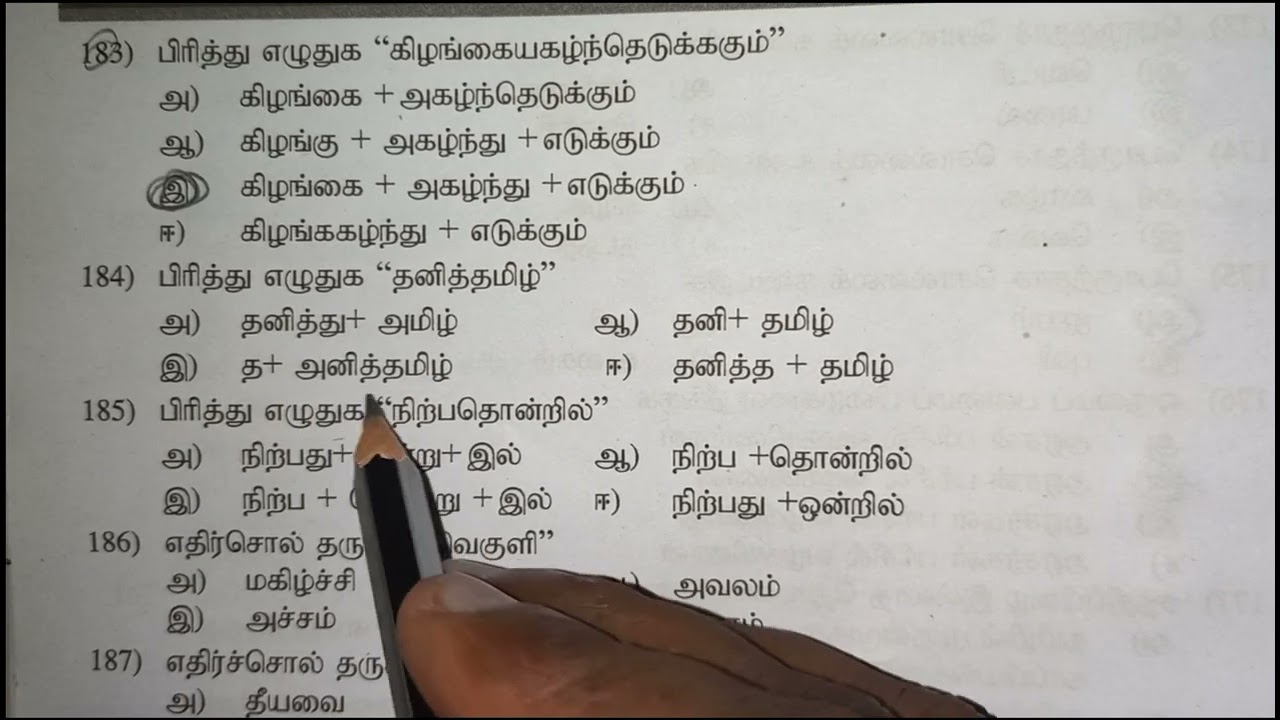 183) பிரித்து எழுதுக “கிழங்கையகழ்ந்தெடுக்ககும்”
அ) கிழங்கை + அகழ்ந்தெடுக்கும்
ஆ) கிழங்கு + அகழ்ந்து + எடுக்கும்
இ) கிழங்கை + அகழ்ந்து + எடுக்கும்
ஈ) கிழங்ககழ்ந்து + எடுக்கும்
184) பிரித்து எழுதுக “தனித்தமிழ்”
அ) தனித்து+ அமிழ் ஆ) தனி+ தமிழ்
இ) த+ அனித்தமிழ் ஈ) தனித்த + தமிழ்
185) பிரித்து எழுதுக “நிற்பதொன்றில்”
அ) நிற்பது+ +இல் ஆ) நிற்ப +தொன்றில்
இ) நிற்ப + +இல் ஈ) நிற்பது +ஒன்றில்
186) எதிர்சொல்
அ) மகிழ்ச்சி அவலம்
இ) அச்சம்
187) எதிர்ச்சொல்
அ) தீயவை